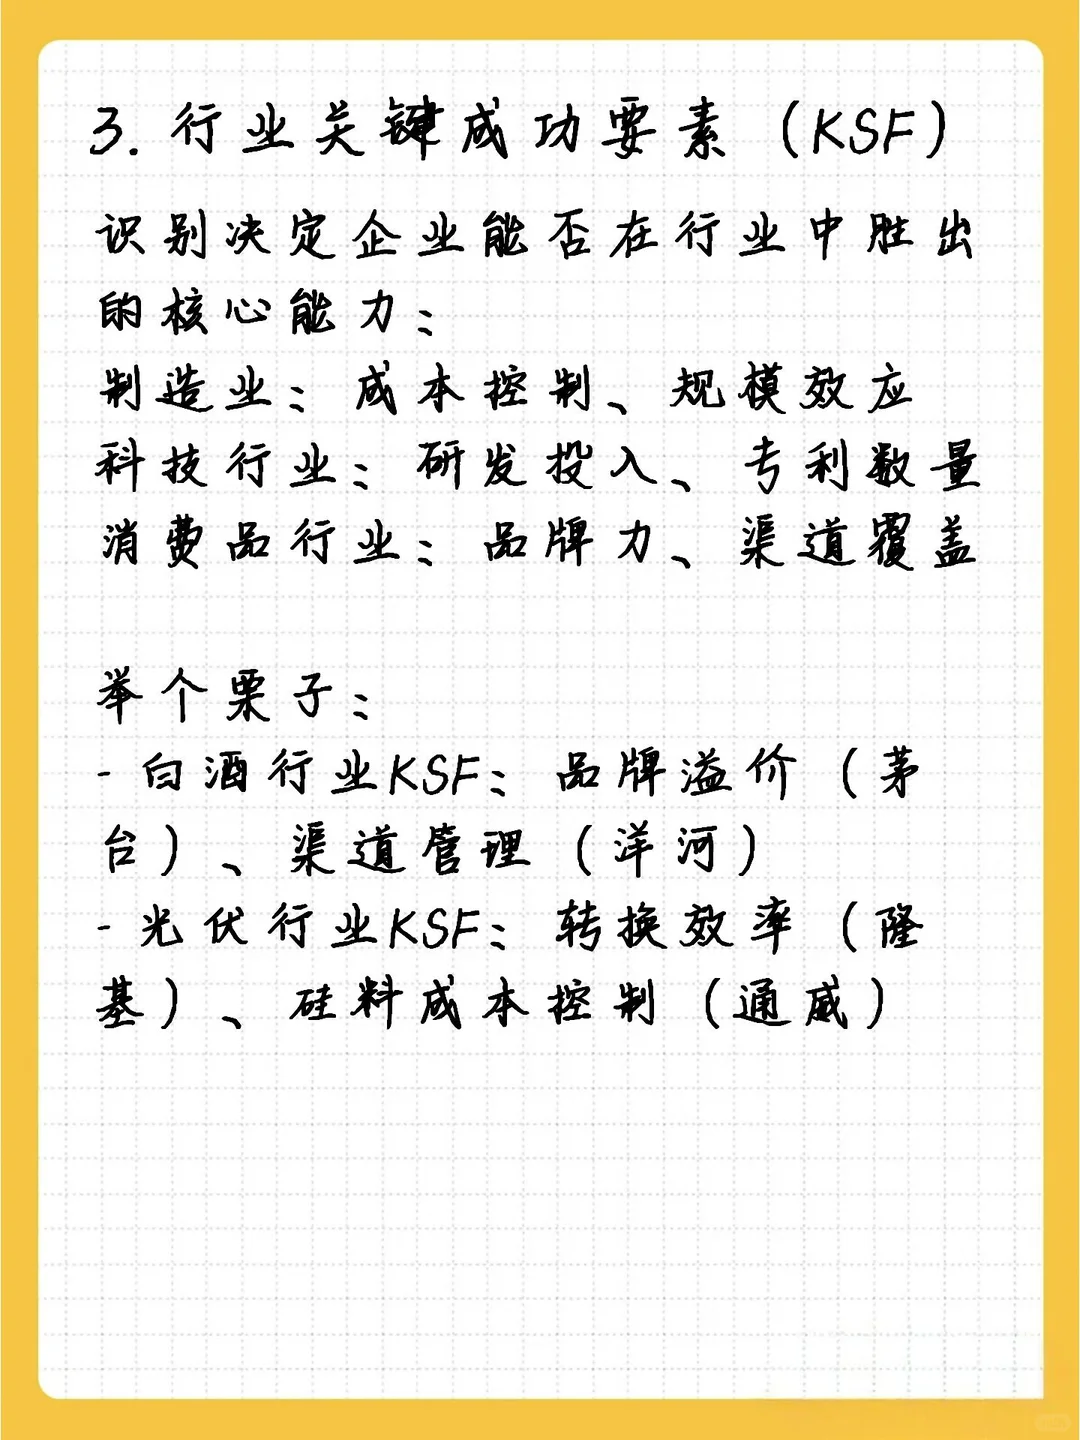 3. 行业关键成功要素（KSF）
识别决定企业能否在行业中胜出
的核心能力：
制造业：成本控制、规模效应
科技行业：研发投入、专利数量
消费品行业：品牌力、渠道覆盖
举个栗子：
- 白酒行业KSF：品牌溢价（茅
台）、渠道管理（洋河）
- 光伏行业KSF：转换效率（隆
基）、硅料成本控制（通威）